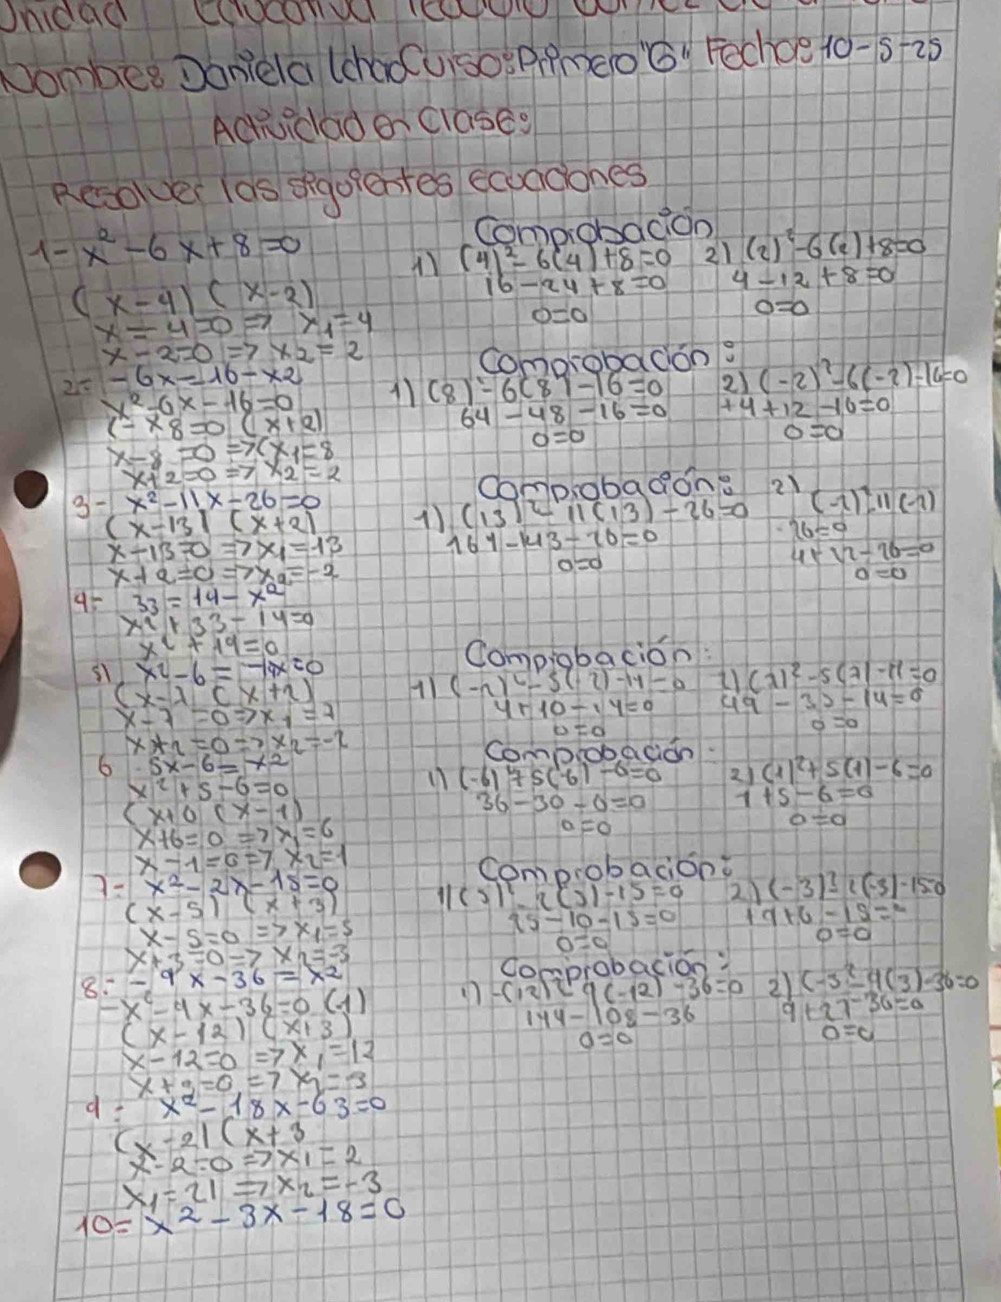 Unidad Educativa
Nombre: Daniela Ichao Curso: Primero "G" Fecha: 10-5-25
Actividad en Clase:
Resolver las siguientes ecuaciones
1- x² - 6x + 8 = 0
(x-4) (x-2)
x = 4=0 => x₁=4
x-2=0 => x2=2
Comprobación
1) (4)²-6(4)+8=0
16-24+8=0
0=0
2) (2)²-6(2)+8=0
4-12+8=0
0=0
2= -6x=16-x2
x²-6x-16=0
(-x8=0 (x+2)
x-8=0 => x₁=8
x+2=0 => x2=2
Comprobación:
1) (8)²-6(8)-16=0
64-48-16=0
0=0
2) (-2)²-6(-2)-16=0
+4+12-16=0
0=0
3- x²-11x-26=0
(x-13) (x+2)
x-13=0 => x₁=13
x+2=0 => x2=-2
Comprobación:
1) (13)²-11(13)-26=0
169-143-26=0
0=0
2) (-2)²-11(-2)
-26=0
4+22-26=0
0=0
4= 33=14-x²
x²+33-14=0
x²+19=0
5) x²-6=-14x=0
(x-7 (x+2)
x-7=0 => x₁=7
x+2=0 => x2=-2
Comprobación:
1) (-2)²-5(-2)-14=0
4+10-14=0
0=0
2) (7)²-5(7)-14=0
49-35-14=0
0=0
6 -5x-6=-x2
x²+5-6=0
(x+6 (x-1)
x+6=0 => x₁=6
x-1=0 => x2=1
Comprobación
1) (-6)²+5(-6)-6=0
36-30-6=0
0=0
2) (1)²+5(1)-6=0
1+5-6=0
0=0
7- x²-2x-15=0
(x-5) (x+3)
x-5=0 => x₁=5
x+3=0 => x2=-3
Comprobación:
1) (5)²-2(5)-15=0
25-10-15=0
0=0
2) (-3)²-2(-3)-150
+9+6-15=0
0=0
8:- -9x-36=x2
-x²-9x-36=0 (1)
(x-12) (x+3)
x-12=0 => x₁=12
x+3=0 => x2=-3
Comprobación:
1) -(12)²9(-12)-36=0
144-108-36
0=0
2) (-3²-9(3)-36=0
9+27-36=0
0=0
9= x²-18x-63=0
(x-21(x+3
x-2=0 => x₁=2
x₁=21 => x2=-3
10= x²-3x-18=0